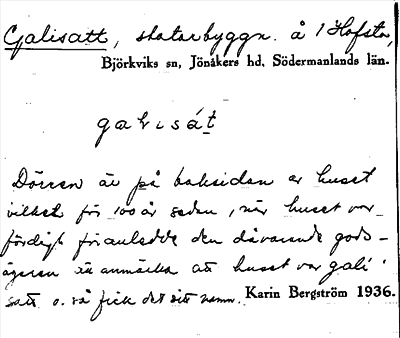 Galisatt, statarbyggn. å 1 Hofsta,
Björkviks sn, Jönåkers hd, Södermanlands län.
galısát
Dörren är på baksidan av huset
vilket för 100 år sedan, när huset var
färdigt föranledde den dåvarande gods-
ägaren att anmärka att huset var gali-
satt o. så fick det sitt namn. Karin Bergström 1936.